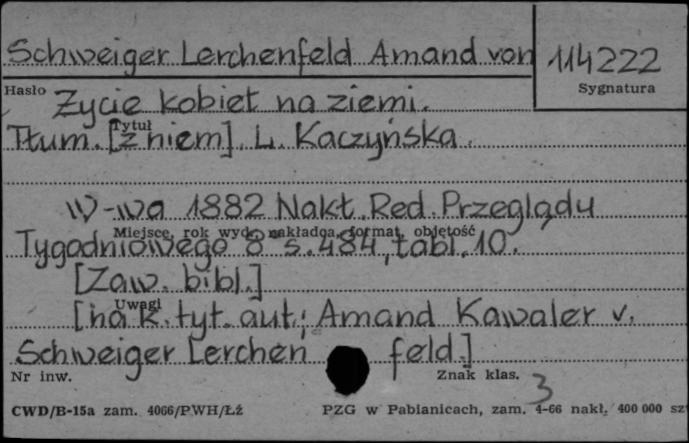 Schweiger Lerchenfeld Amand von
114222
Hasło
Sygnatura
Życie kobiet na ziemi.
Tytuł
Tłum. [z niem]. L. Kaczyńska.
W-wa 1882 Nakł. Red. Przeglądu
Miejsce, rok wyd., nakładca, format, objętość
Tygodniowego 8° s. 484, tabl. 10.
[Zaw. bibl.]
Uwagi
[na k. tyt. aut.: Amand Kawaler v.
Schweiger Lerchenfeld.]
Nr inw.
Znak klas.
3
CWD/B-15a zam. 4066/PWH/Łź
PZG w Pabianicach, zam. 4-66 nakł. 400 000 sz